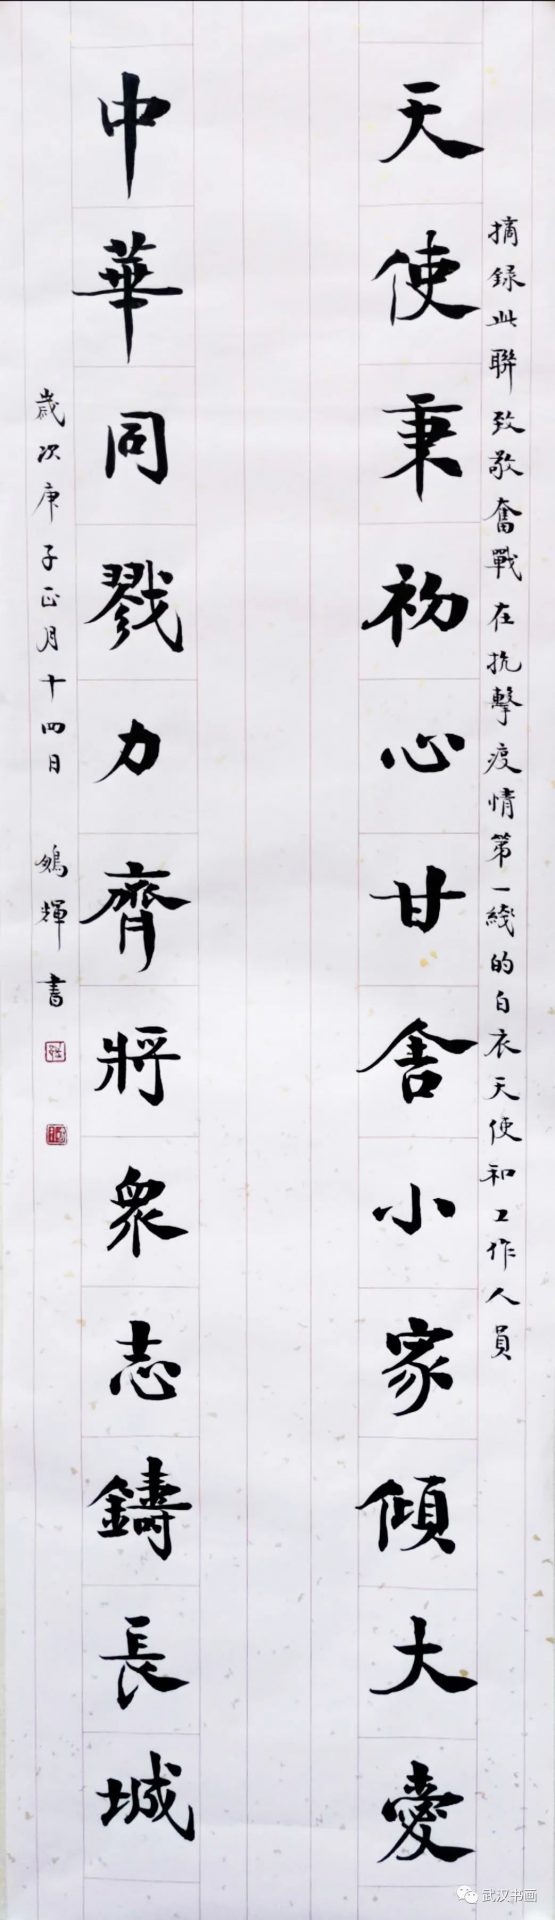 摘録此聯致敬奮戰在抗擊疫情第一綫的白衣天使和工作人員
天使秉初心甘舍小家傾大愛
中華同戮力齊將衆志鑄長城
歲次庚子正月十四日 鴻輝書
武汉书画